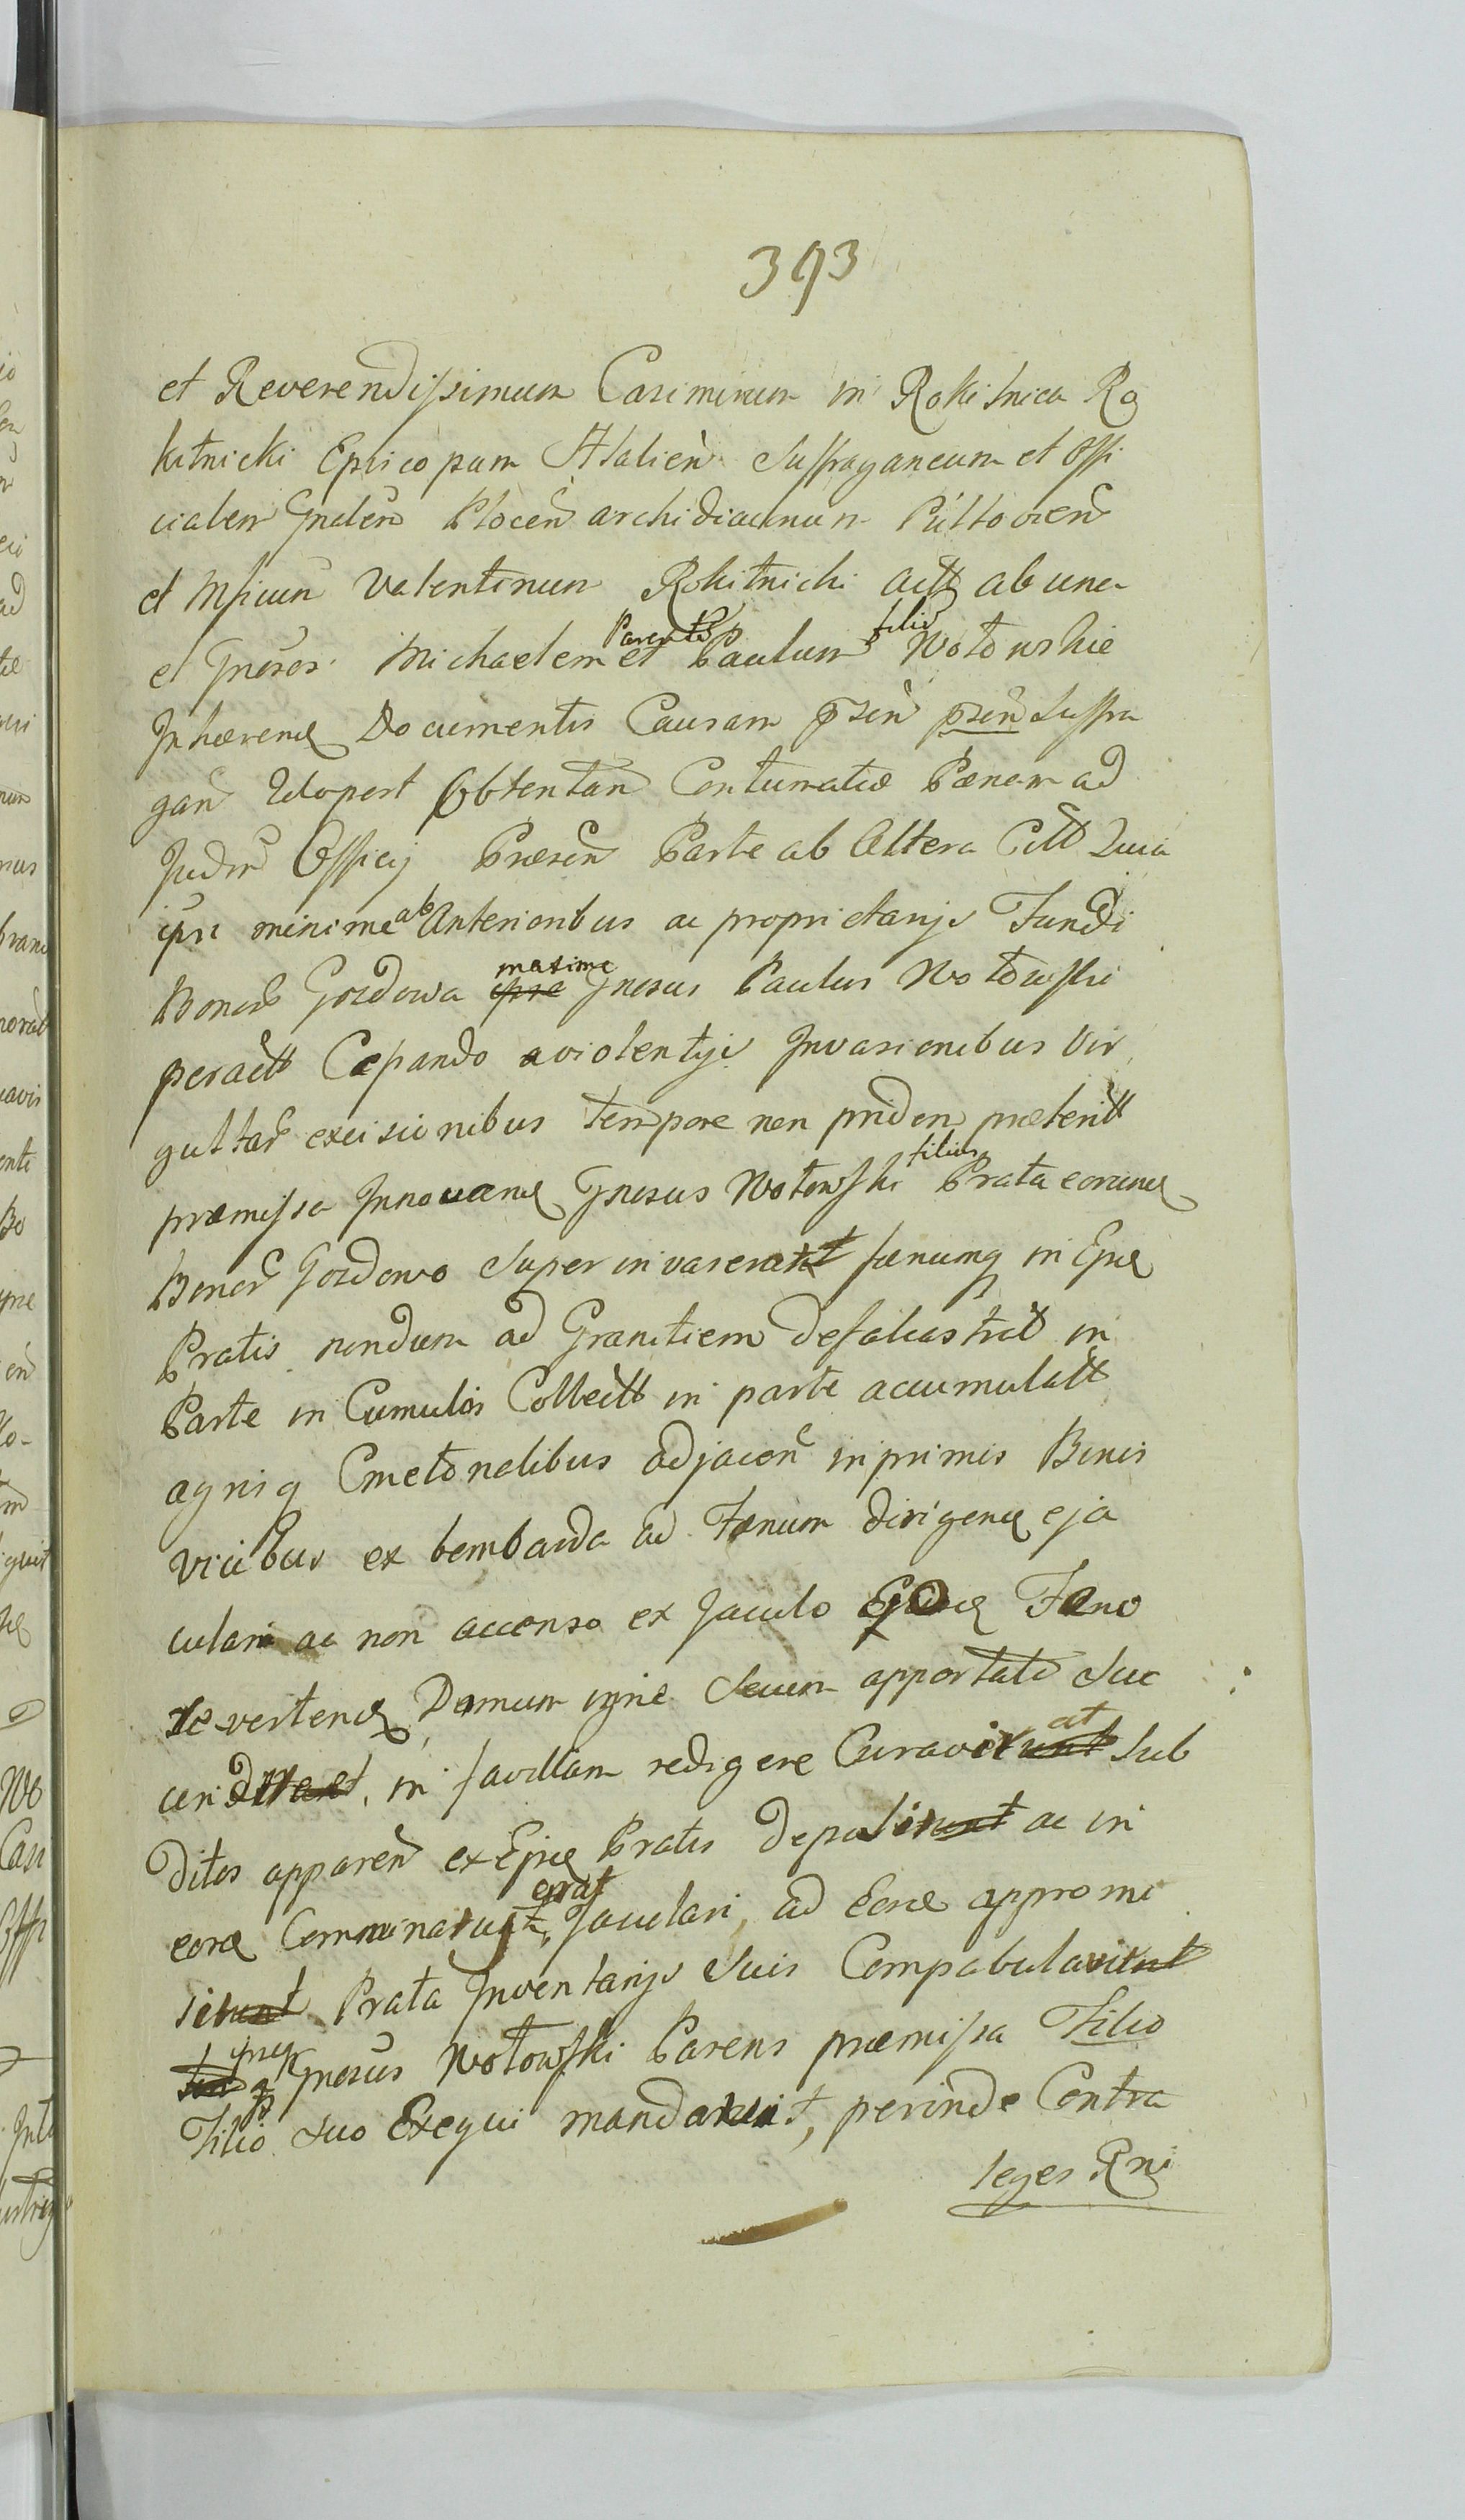 393
et Reverendissimum Casimirum in Rokitnica Ro
kitnicki Eplicopum Halień Suffraganeum et Offi
cialem Gnalem Plocen archidiaconum Pultovień
et Mficum Valentinum Rokitnicki actt ab una
et Gnesos Michaelem Parente et Paulum filio Wotowskie
Inhaerene Documentis Causam psen psen Suffra
gan obtentan Contumatiae Paenam ad
Judm Officij Praesen Parte ab Altera Citt Quia
ipsi minime ab Anterioribus ac proprietarijs Fundi
Bonor Gozdowa ipse maxime Gnesus Paulus Wotowski
peractt Capando a violentijs Invasionibus Vir
gultar excisionibus tempore non pridem praeteritt
praemissa Innovane Gnesus Wotowski filius Prata eorune
Bonor Gozdowo Superinvaserant faenumq in Epse
Pratis nondum ad Granitiem defalcastratt in
Parte in Cumulos Collectt in parte accumulatt
agrisq Cmetonalibus adjacen inprimis Binis
vicibus ex bombarda ad Faenum dirigene eja
culari ac non accenso ex Jaculo Faeno
revertene Domum igne Secum apportato Suc
cendit, in favillam redigere Curavit Sub
ditos apparen ex Epse Pratis depulit ac in
eose Comminat erat, Jaculari, ad Eose appromi
sit Prata Inventarijs Suis Compabulavit
Gnesus Wotowski Parens praemissa Filio
Filio Suo Exequi mandavit, perinde Contra
leges Rni